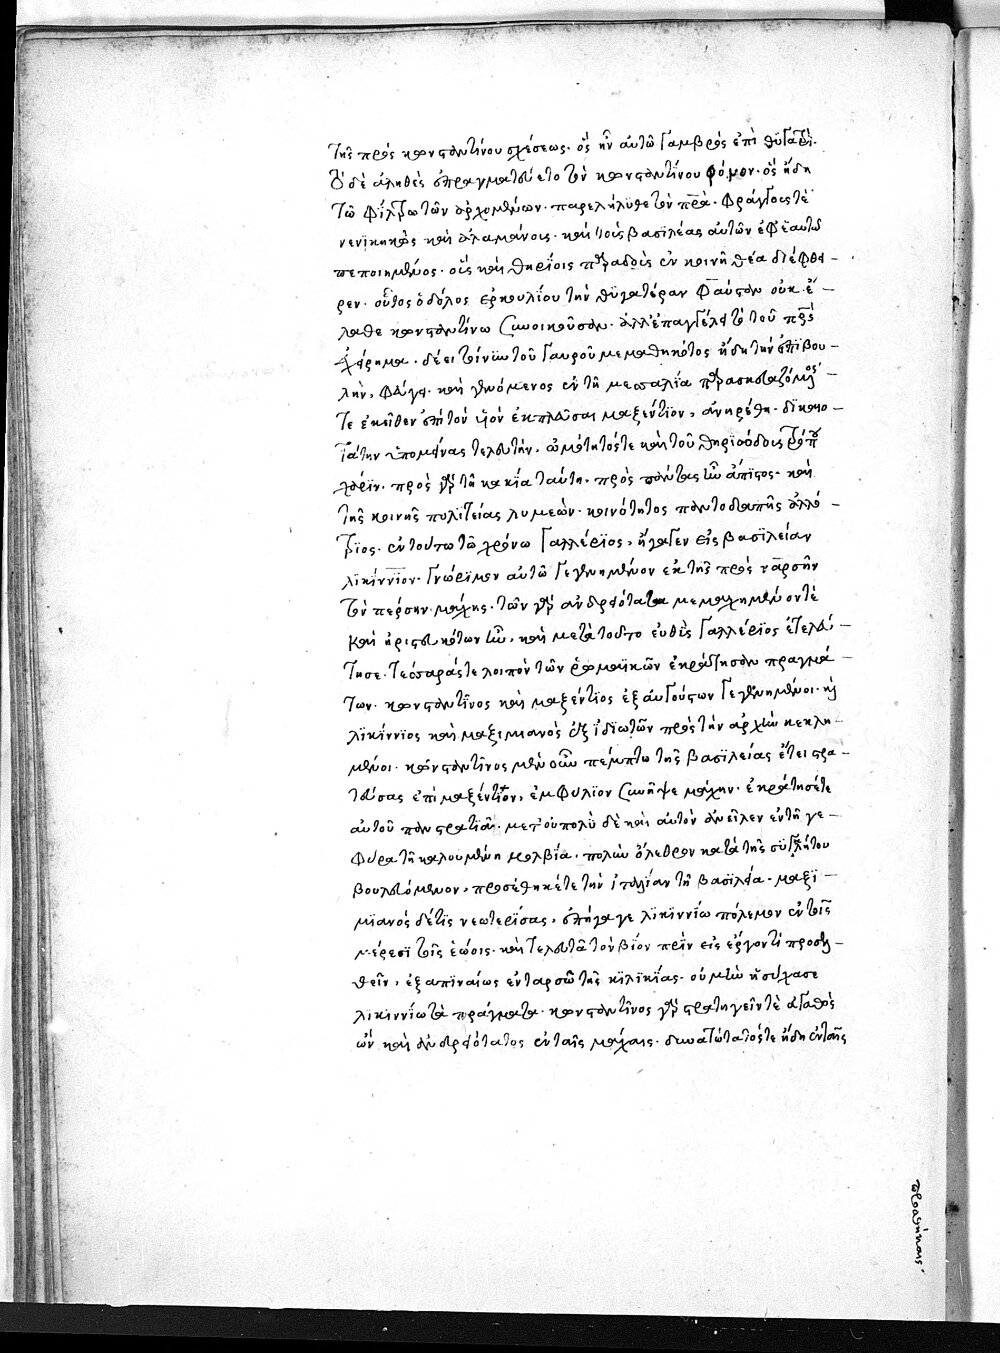 τῆς πρὸς κωνσταντίνου σχέσεως· ὃς ἦν αὐτῶ γαμβρὸς ἐπὶ θυγατρί·
τὸ δὲ ἀληθὲς ἐπραγματεύετο τὸν κωνσταντίνου φόνον· ὃς ἤδη
τῶ φίλτρω τῶν ἀρχομένων παρεληλύθει τὸν πρα· φράγγους τὲ
νενικηκὼς καὶ ἀλαμάνους· καὶ τοὺς βασιλέας αὐτῶν ἐφ' ἑαυτῶ
πεποιημένος· οὓς καὶ θηρίοις παραδοὺς ἐν κοινῆ θέα διέφθει –
ρεν· οὗτος ὁ δόλος ἑρκουλίου τὴν θυγατέραν φαύσταν οὐκ ἔ –
λαθε κωνσταντίνω συνοικοῦσαν· ἀλλ' ἐπαγγέλει τὸ τοῦ πρς
ἐγχείρημα· δέει τοίνυν τοῦ γαμβροῦ μεμαθηκότος ἤδη τὴν ἐπιβου –
λὴν, φεύγει· καὶ γενόμενος ἐν τῆ μεσαλία παρασκευαζόμενος
τε ἐκεῖθεν ἐπὶ τὸν υἱὸν ἐκπλεῦσαι μαξέντιον, ἀνηρέθη· δικαιο –
τάτην ὑπομείνας τελευτὴν, ὠμότητός τε καὶ τοῦ θηριώδους τρόπου
χάριν· πρὸς γὰρ τῆ κακία ταύτη· πρὸς πάντας ἦν ἄπιστος· καὶ
τῆς κοινῆς πολιτείας λυμεὼν· κοινότητος παντοδαπῆς ἀλλό –
τριος· ἐν τούτω τῶ χρόνω γαλλέριος, ἤγαγεν εἰς βασιλείαν
λικίννιον· γνώριμον αὐτῶ γεγενημένον ἐκ τῆς πρὸς ναρσῆν
τὸν πέρσην μάχης· τῶν γὰρ ἀνδρειότατα μεμαχημένων τὲ
καὶ ἠριστευκότων ἦν, καὶ μετὰ τοῦτο εὐθὺς γαλλέριος ἐτελεύ –
τησε· τέσσαρές τε λοιπὸν τῶν ῥωμαϊκῶν ἐκράτησαν πραγμά –
των· κωνσταντῖνος καὶ μαξέντιος ἐξ αὐγούστων γεγενημένοι· καὶ
λικίννιος καὶ μαξιμιανὸς ἐξ ἰδιωτῶν πρὸς τὴν ἀρχὴν κεκλη –
μένοι· κωνσταντῖνος μὲν οὖν πέμπτω τῆς βασιλείας ἔτει στρα –
τεύσας ἐπὶ μαξέντιον, ἐμφύλιον συνῆψε μάχην· ἐκράτησέ τε
αὐτοῦ τὴν στρατιὰν· μετ' οὐ πολὺ δὲ καὶ αὐτὸν ἀνεῖλεν ἐν τῆ γε –
φύρα τῆ καλουμένη μολβία· πολὺν ὄλεθρον κατὰ τῆς συγκλήτου
βουλευόμενον, προσέθηκέ τε τὴν ἰταλίαν τῆ βασιλεία· μαξι –
μιανὸς δέ τις νεωτερίσας, ἐπήγαγε λικιννίω πόλεμον ἐν τοῖς
μέρεσι τοῖς ἑώοις· καὶ τελευτᾶ τὸν βίον πρὶν εἰς ἔργον τι προσελ –
θεῖν, ἐξαπιναίως ἐν ταρσῶ τῆς κιλικίας· οὐ μὴν ἡσύχασε
λικιννίω τὰ πράγματα· κωνσταντῖνος γὰρ στρατηγεῖν τὲ ἀγαθὸς
ὢν καὶ ἀνδρειότατος ἐν ταῖς μάχαις· δυνατώτατός τε ἤδη ἐν ταῖς